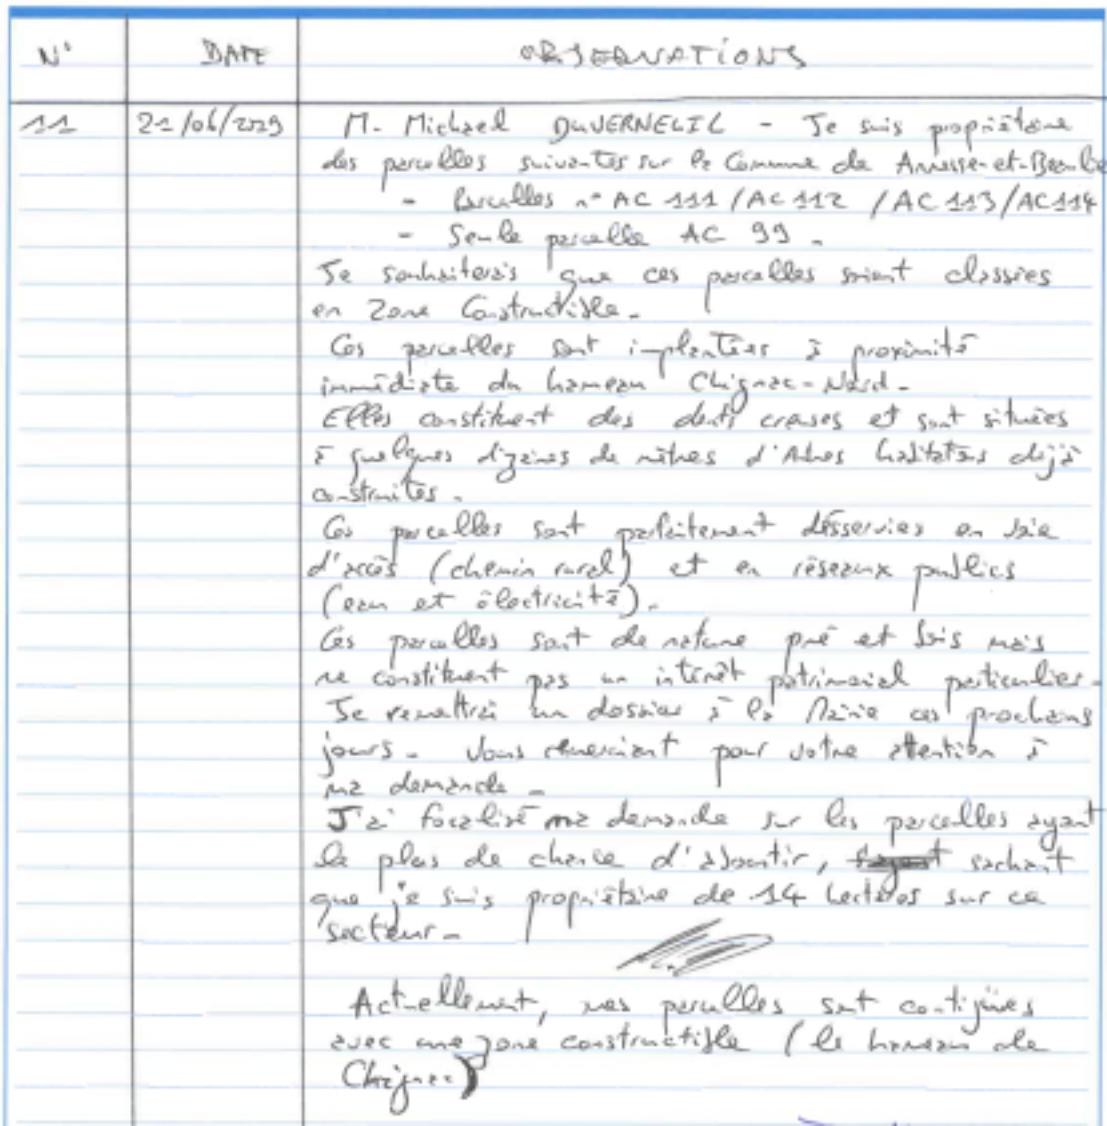 N° DATE OBSERVATIONS
11 21/06/2023 M. Michael DUVERNEUIL - Je suis propriétaire
des parcelles suivantes sur la Commune de Annesse-et-Beaulieu
- Parcelles n° AC 111 / AC 112 / AC 113 / AC 114
- Seule parcelle AC 99.
Je souhaiterais que ces parcelles soient classées
en Zone Constructible.
Ces parcelles sont implantées à proximité
immédiate du hameau Chignac-Nord.
Elles constituent des dents creuses et sont situées
à quelques dizaines de mètres d'Autres habitations déjà
construites.
Ces parcelles sont parfaitement désservies en voie
d'accès (chemin rural) et en réseaux publics
(eau et électricité).
Ces parcelles sont de nature pré et bois mais
ne constituent pas un intérêt patrimonial particulier.
Je remettrai un dossier à la Mairie ces prochains
jours. Vous remerciant pour votre attention à
ma demande.
J'ai focalisé ma demande sur les parcelles ayant
le plus de chance d'aboutir, sachant
que je suis propriétaire de 14 hectares sur ce
secteur.
Actuellement, mes parcelles sont contigües
avec une zone constructible (le hameau de
Chignac)